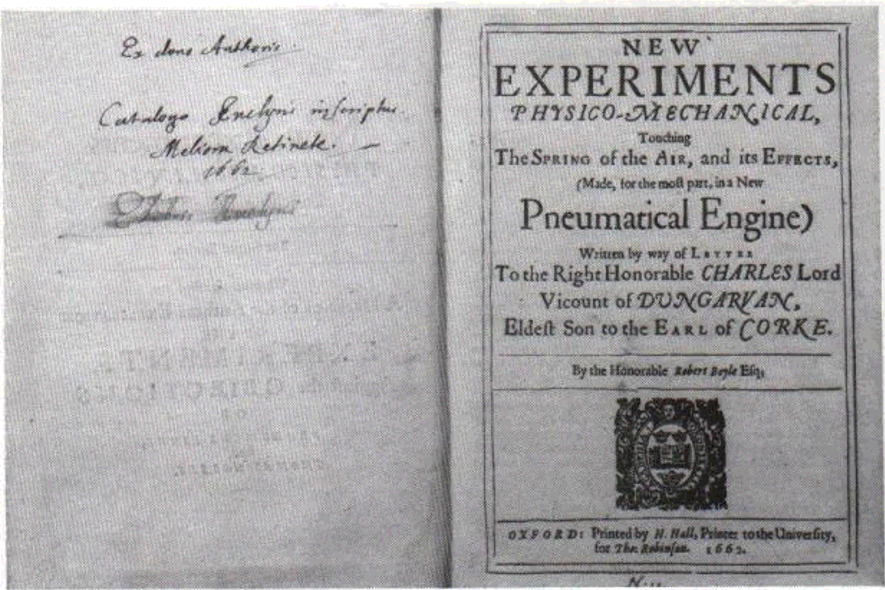 Ex dono Authoris.
Catalogo Evelyni inscriptus.
Meliora Retinete.
1662
NEW
EXPERIMENTS
PHYSICO-MECHANICAL,
Touching
The SPRING of the AIR, and its EFFECTS,
(Made, for the moſt part, in a New
Pneumatical Engine)
Written by way of LETTER
To the Right Honorable CHARLES Lord
Vicount of DUNGARVAN,
Eldeſt Son to the EARL of CORKE.
By the Honorable Robert Boyle Eſq;
OXFORD: Printed by H. Hall, Printer to the Univerſity,
for Tho: Robinſon. 1662.